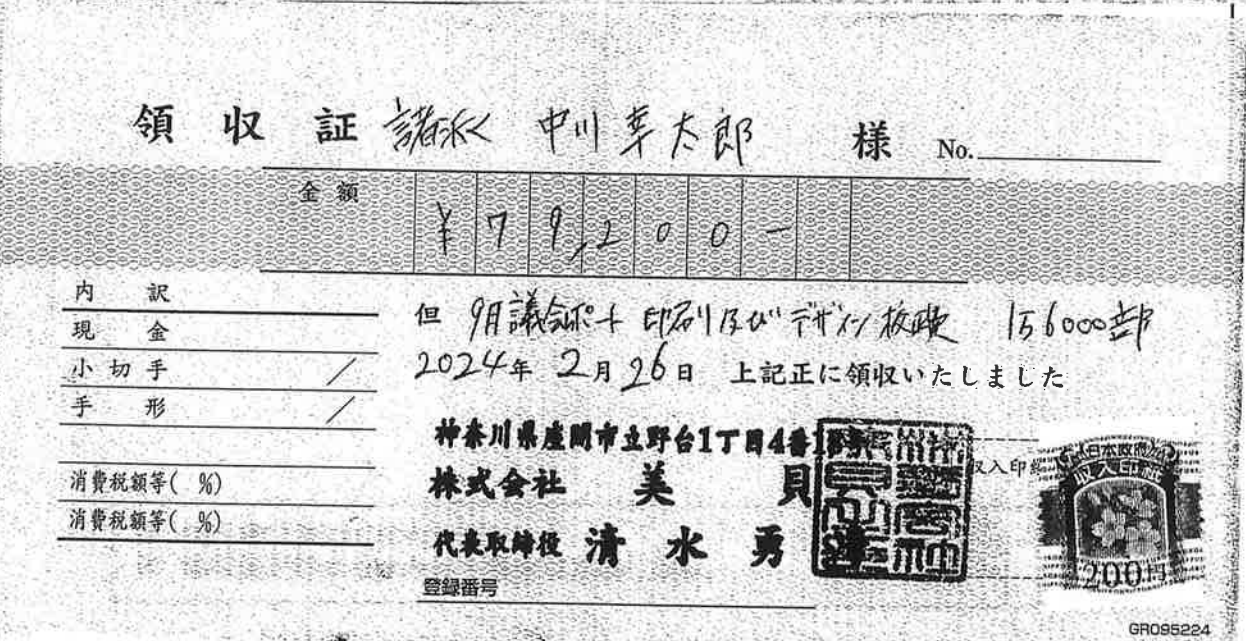 領収証 諸派 中川幸太郎 様 No.
金額 ¥79,200-
内訳
現金
小切手 /
手形 /
消費税額等( %)
消費税額等( %)
但 9月議会レポート印刷及びデザイン 1万6000部
2024年2月26日 上記正に領収いたしました
神奈川県座間市立野台1丁目4番
株式会社 美貝
代表取締役 清水勇
登録番号
収入印紙
日本政府
収入印紙
200円
GR095224